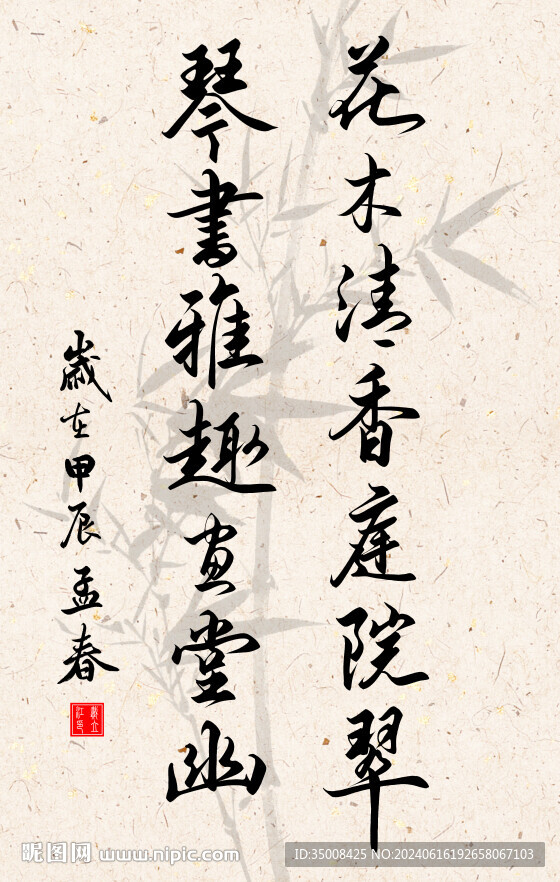 花木清香庭院翠
琴書雅趣画堂幽
歲在甲辰孟春
昵图网 www.nipic.com
ID:35008425 NO:20240616192658067103